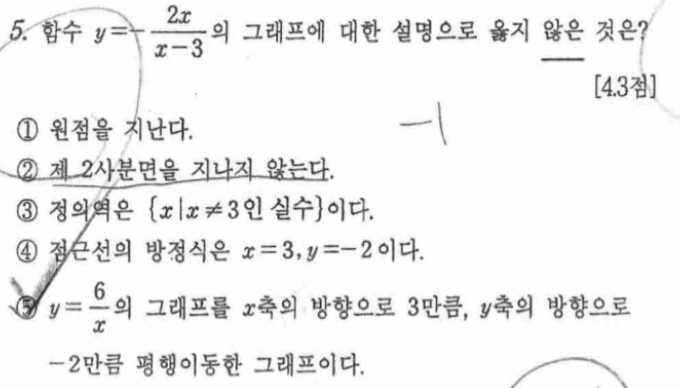 5. 함수 y=-\frac{2x}{x-3}의 그래프에 대한 설명으로 옳지 않은 것은?
[4.3점]
-1
① 원점을 지난다.
② 제 2사분면을 지나지 않는다.
③ 정의역은 {x|x≠3인 실수}이다.
④ 점근선의 방정식은 x=3, y=-2이다.
⑤ y=\frac{6}{x}의 그래프를 x축의 방향으로 3만큼, y축의 방향으로
-2만큼 평행이동한 그래프이다.